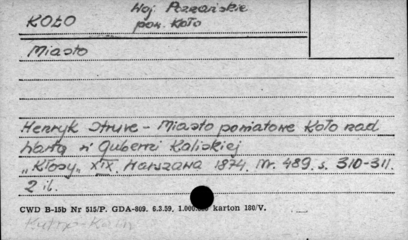 KOŁO
Woj. Poznańskie
pow. Koło
Miasto
Henryk Struve - Miasto powiatowe Koło nad
Wartą w Guberni Kaliskiej
"Kłosy" XIX. Warszawa 1874. Nr. 489. s. 310-311.
2 il.
CWD B-15b Nr 515/P. GDA-809. 6.3.59. 1.000.000 karton 180/V.